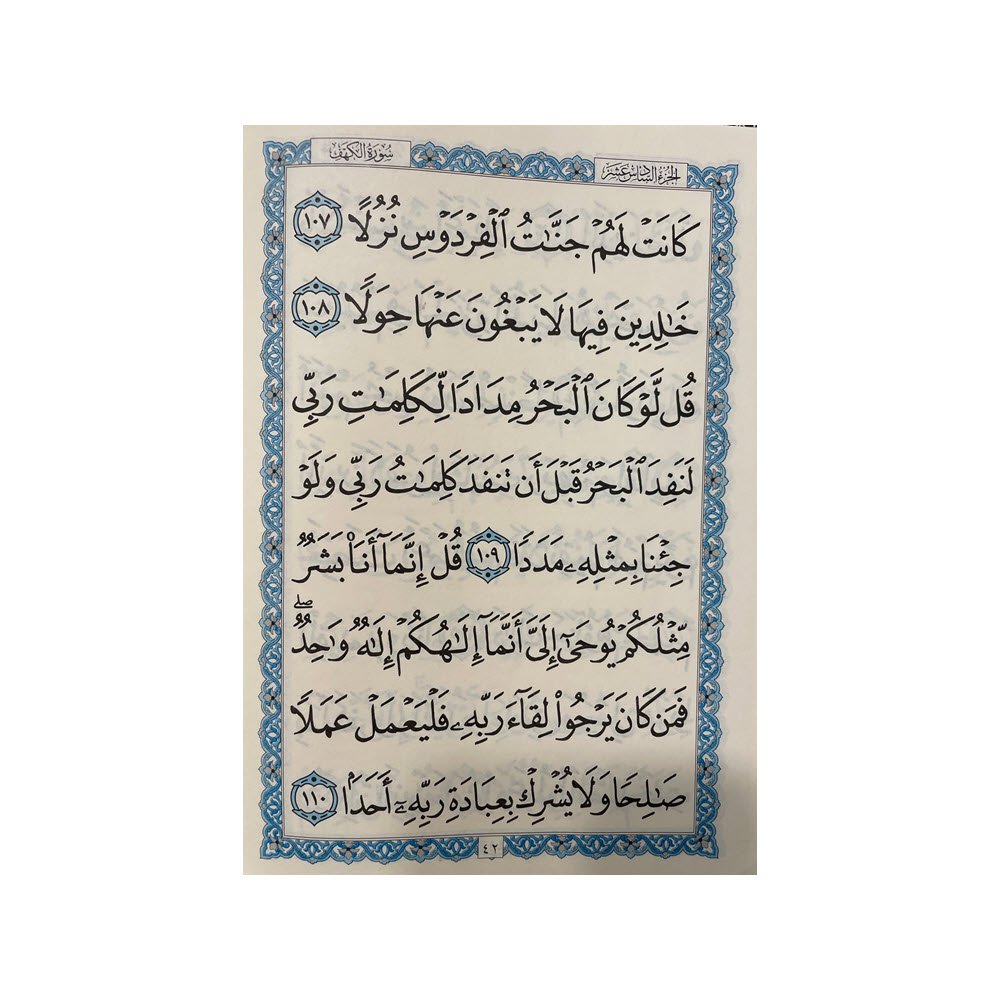 الجزء السادس عشر
سورة الكهف
كَانَتْ لَهُمْ جَنَّٰتُ ٱلْفِرْدَوْسِ نُزُلًا ١٠٧
خَٰلِدِينَ فِيهَا لَا يَبْغُونَ عَنْهَا حِوَلًا ١٠٨
قُل لَّوْ كَانَ ٱلْبَحْرُ مِدَادًا لِّكَلِمَٰتِ رَبِّى
لَنَفِدَ ٱلْبَحْرُ قَبْلَ أَن تَنفَدَ كَلِمَٰتُ رَبِّى وَلَوْ
جِئْنَا بِمِثْلِهِۦ مَدَدًا ١٠٩ قُلْ إِنَّمَآ أَنَا۠ بَشَرٌ
مِّثْلُكُمْ يُوحَىٰٓ إِلَىَّ أَنَّمَآ إِلَٰهُكُمْ إِلَٰهٌ وَٰحِدٌ ۖ
فَمَن كَانَ يَرْجُوا۟ لِقَآءَ رَبِّهِۦ فَلْيَعْمَلْ عَمَلًا
صَٰلِحًا وَلَا يُشْرِكْ بِعِبَادَةِ رَبِّهِۦٓ أَحَدًۢا ١١٠
٤٢